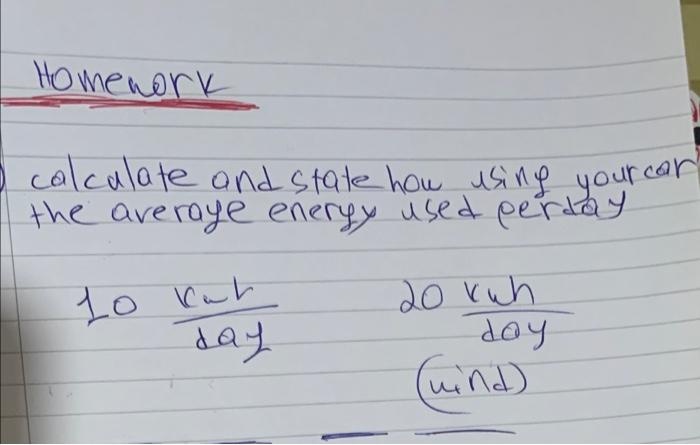 Homework
calculate and state how using your car
the average energy used per day
10 kwh 20 kwh
day day
(wind)